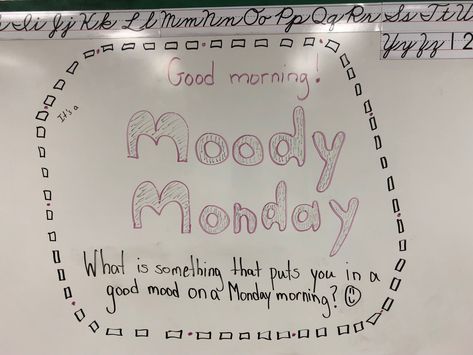 Ii Jj Kk Ll Mm Nn Oo Pp Qq Rr Ss Tt U
Yy Zz 1 2
Good morning!
It's a
Moody
Monday
What is something that puts you in a
good mood on a Monday morning? ☺